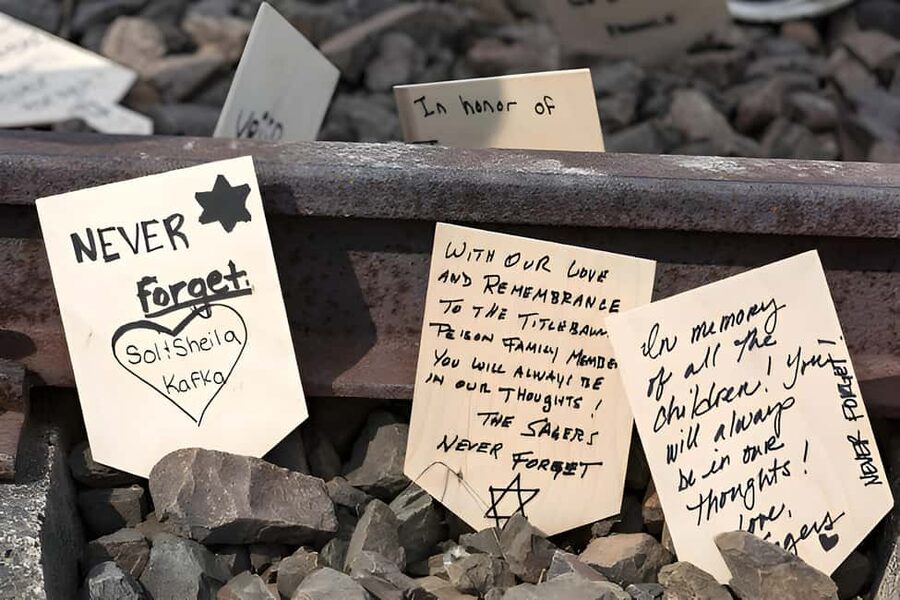 In honor of
NEVER
Forget.
Sol + Sheila
Kafka
WITH OUR LOVE
AND REMEMBRANCE
TO THE TITLEBAUM
FAMILY
YOU WILL ALWAYS BE
IN OUR THOUGHTS!
THE SAGERS
NEVER FORGET
In memory
of all the
children! You
will always
be in our
thoughts!
Love,
NEVER FORGET!